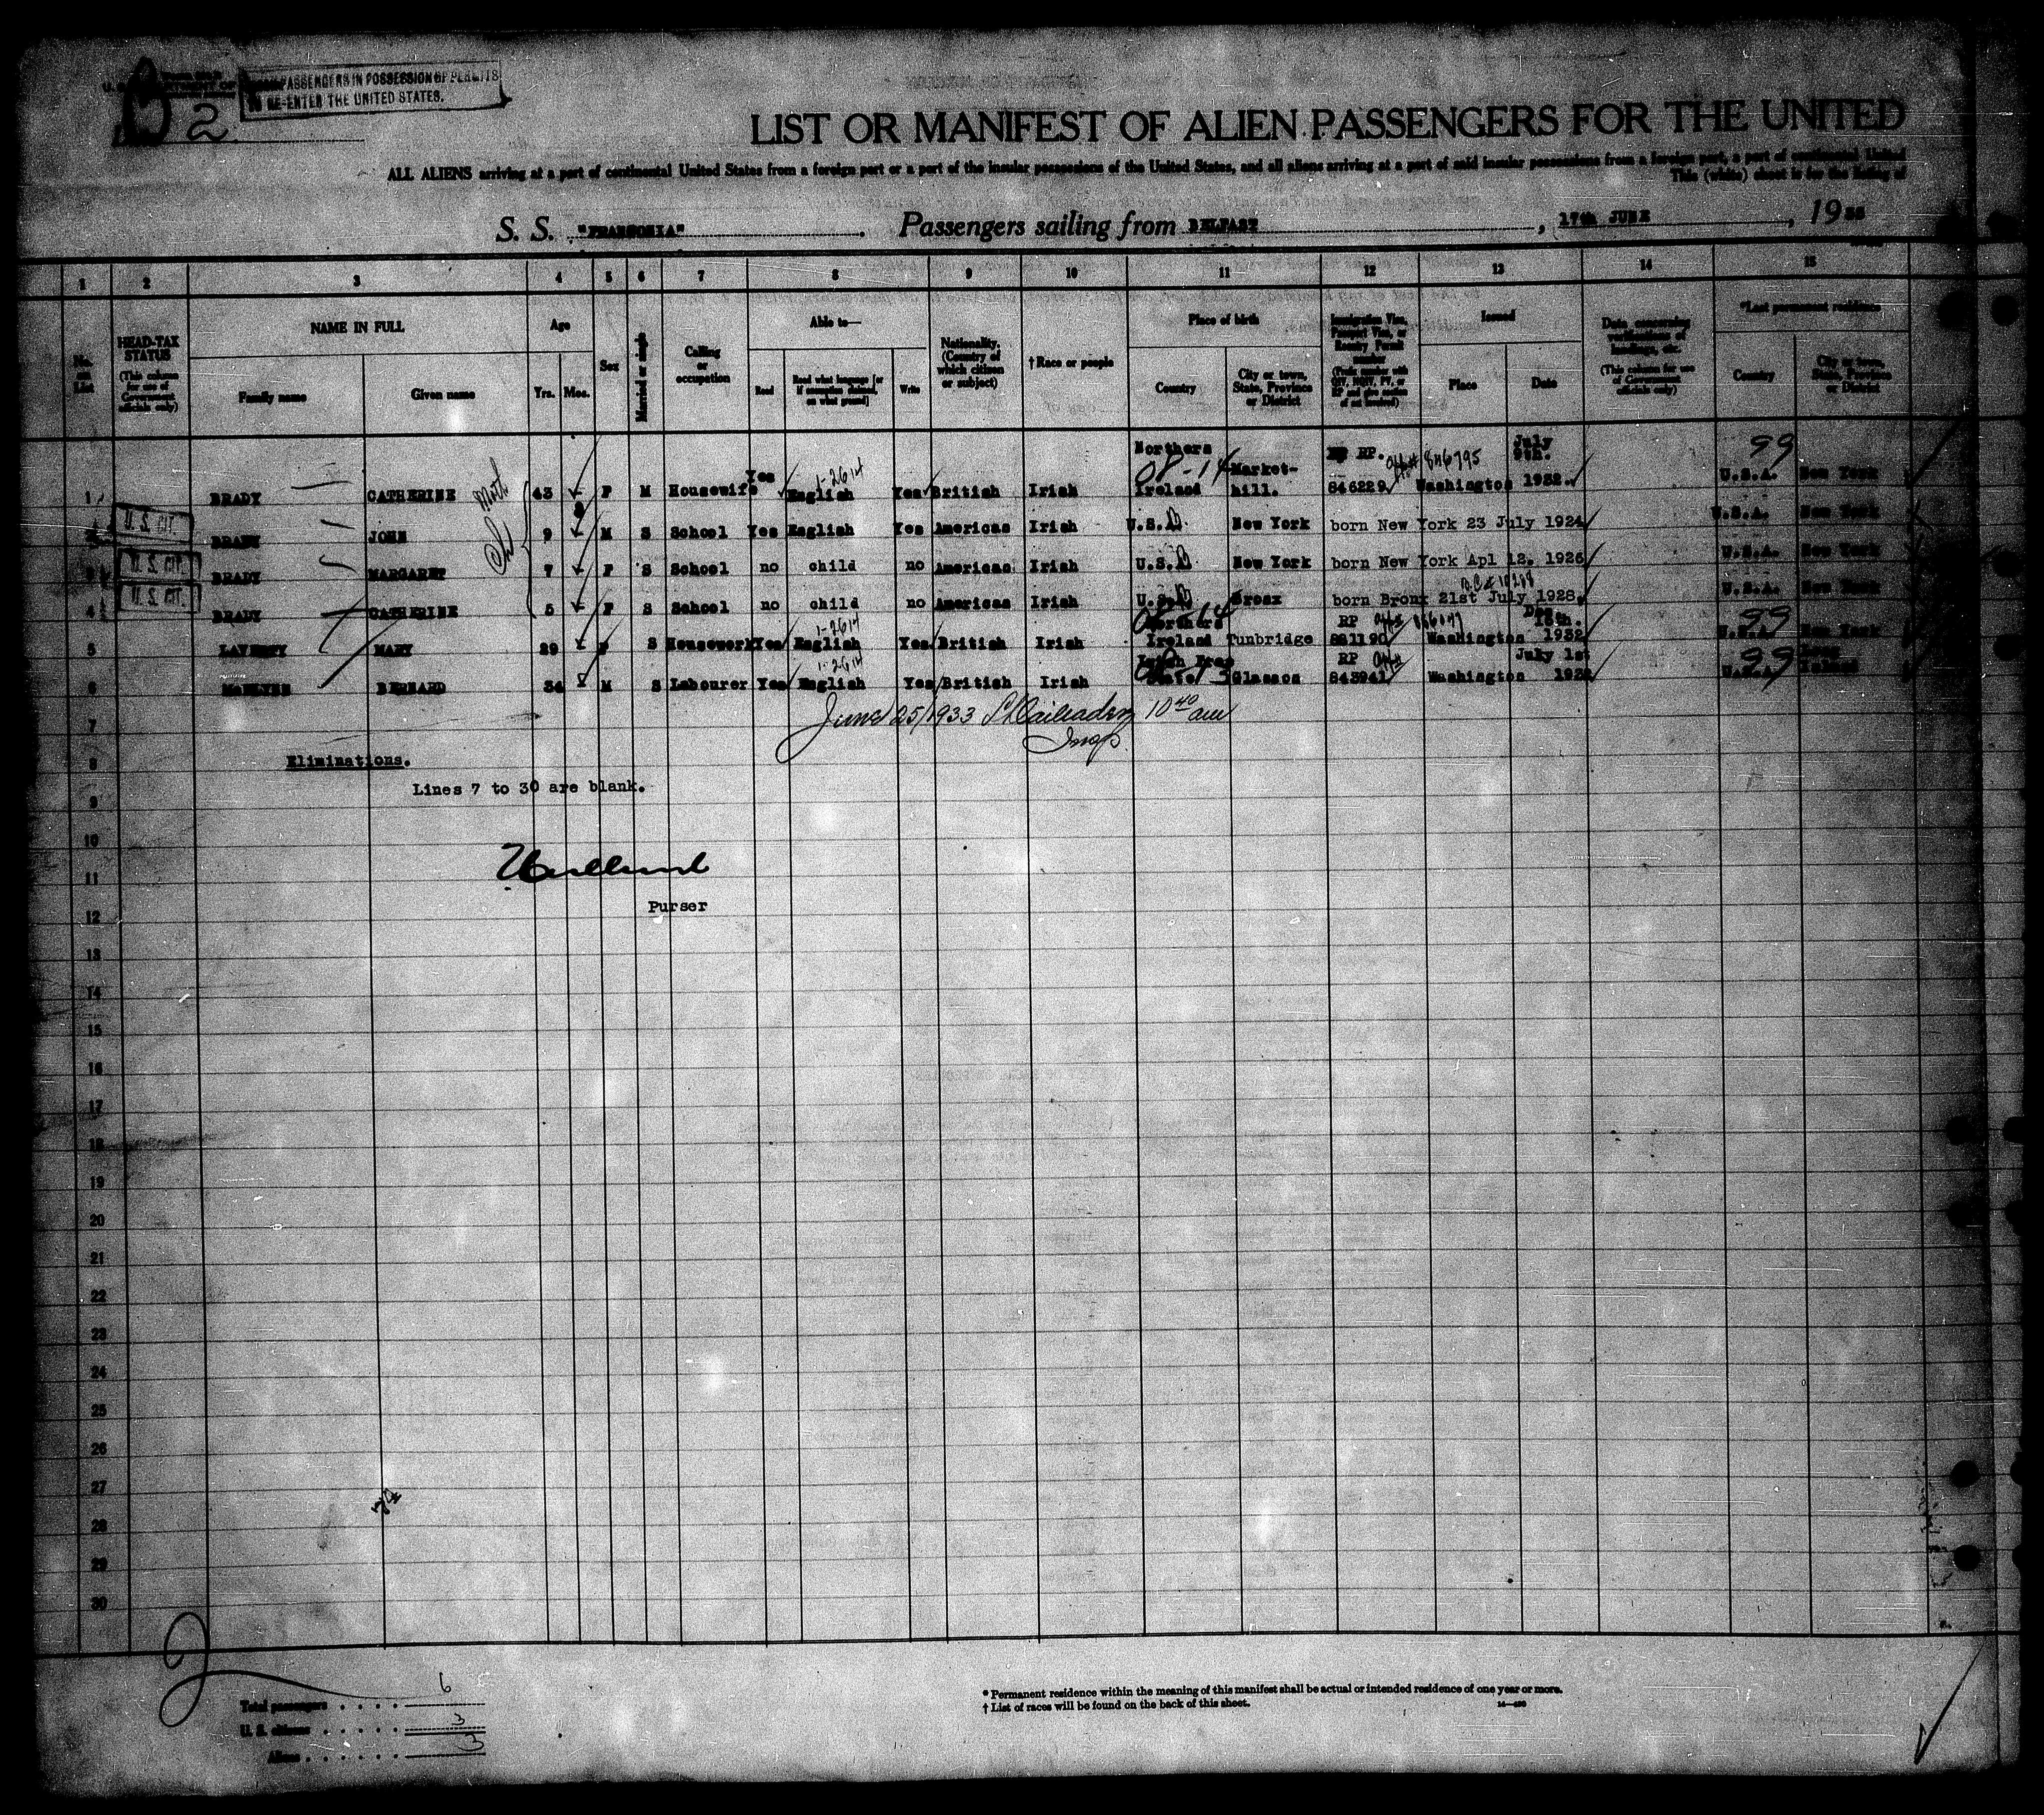 PASSENGERS IN POSSESSION OF PERMITS
TO RE-ENTER THE UNITED STATES.
2
LIST OR MANIFEST OF ALIEN PASSENGERS FOR THE UNITED
ALL ALIENS arriving at a port of continental United States from a foreign port or a port of the insular possessions of the United States, and all aliens arriving at a port of said insular possessions from a foreign port, a port of continental United
This (white) sheet is for the listing of
S. S. "FRANCONIA" Passengers sailing from BELFAST, 17th JUNE, 19
1 2 3 4 5 6 7 8 9 10 11 12 13 14 15
No. on List
HEAD-TAX STATUS (This column for use of Government officials only)
NAME IN FULL
Family name Given name
Age
Yrs. Mos.
Sex
Married or single
Calling or occupation
Able to—
Read Read what language [or if exemption claimed, on what ground] Write
Nationality. (Country of which citizen or subject)
†Race or people
Place of birth
Country City or town, State, Province or District
Immigration Visa, Passport Visa, or Reentry Permit number
Issued
Place Date
Data concerning verifications of landings, etc. (This column for use of Government officials only)
*Last permanent residence
Country City or town, State, Province or District
1 BRADY CATHERINE 43 F M Housewife Yes English 1-2614 Yes British Irish Northern Ireland 08-14 Market-hill. RP. 846229 846795 Washington July 9th. 1932. 99 U.S.A. New York
U.S. CIT. BRADY JOHN 9 M S School Yes English Yes American Irish U.S.A. New York born New York 23 July 1924 U.S.A. New York
U.S. CIT. 3 BRADY MARGARET 7 F S School no child no American Irish U.S.A. New York born New York Apl 12. 1926 U.S.A. New York
U.S. CIT. 4 BRADY CATHERINE 5 F S School no child no American Irish U.S.A. Bronx born Bronx 21st July 1928. U.S.A. New York
5 LAVERTY MARY 29 F S Housework Yes English 1-2614 Yes British Irish Northern Ireland Tunbridge RP 881190 Washington Dec 15th. 1932 99 U.S.A. New York
6 BERNARD 34 M S Labourer Yes English 1-2614 Yes British Irish Irish Free State Glasson RP 843941 Washington July 1st 1932 99 U.S.A. Long Island
7 June 25/1933 10 40 am
Insp.
8 Eliminations.
9 Lines 7 to 30 are blank.
10
11
12 Purser
13
14
15
16
17
18
19
20
21
22
23
24
25
26
27
28
29
30
Total passengers . . . . 6
U. S. citizens . . . . . 3
Aliens . . . . . . 3
* Permanent residence within the meaning of this manifest shall be actual or intended residence of one year or more.
† List of races will be found on the back of this sheet.